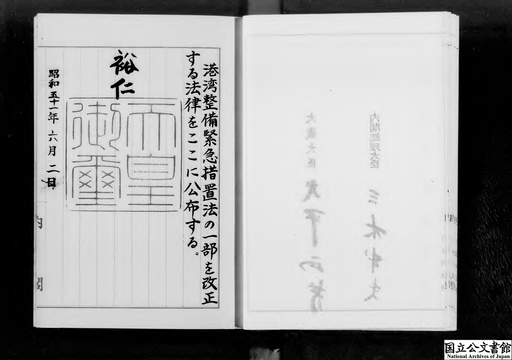 港湾整備緊急措置法の一部を改正
する法律をここに公布する。
裕仁
天皇
御璽
昭和五十一年六月二日
内閣
内閣総理大臣 三木武夫
大蔵大臣 大平正芳
国立公文書館
National Archives of Japan